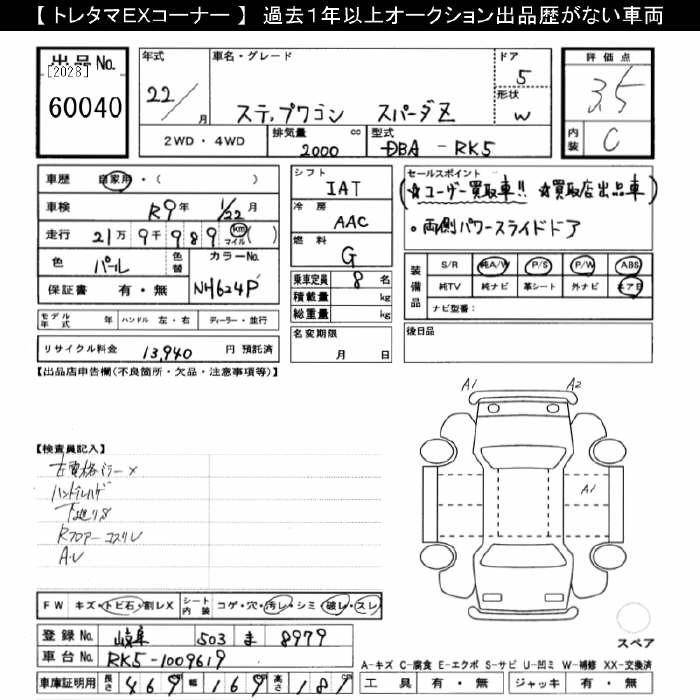 【 トレタマEXコーナー 】 過去１年以上オークション出品歴がない車両
出品No.
[2028]
60040
年式 22/ 月
車名・グレード
ステップワゴン スパーダZ
ドア 5
形状 W
評価点 3.5
内装 C
2WD・4WD
排気量 2000 cc
型式 DBA - RK5
車歴 自家用・( )
車検 R9年 1/22月
走行 21万9千989 km マイル ( )
色 パール
色替
カラーNo. NH624P
保証書 有・無
モデル年式 年
ハンドル 左・右
ディーラー・並行
リサイクル料金 13,940 円 預託済
シフト IAT
冷房 AAC
燃料 G
乗車定員 8 名
積載量 kg
総重量 kg
名変期限
月 日
セールスポイント
(☆ユーザー買取車!! ☆買取店出品車)
・両側パワースライドドア
装備品
S/R 純A/W P/S P/W ABS
純TV 純ナビ 革シート 外ナビ エアB
ナビ型番:
後日品
【出品店申告欄(不良箇所・欠品・注意事項等)】
【検査員記入】
左電格ミラー×
ハンドルハゲ
下廻りS
Rフロアーコスリ
A・U
A1 A2
A1
FW キズ・トビ石・割レX
シート内装 コゲ・穴・汚レ・シミ 破レ・スレ
登録No. 岐阜 503 ま 8979
車台No. RK5-1009619
車庫証明用 長さ 469 幅 169 高さ 181
スペア
A-キズ C-腐食 E-エクボ S-サビ U-凹ミ W-補修 XX-交換済
工具 有・無 ジャッキ 有・無